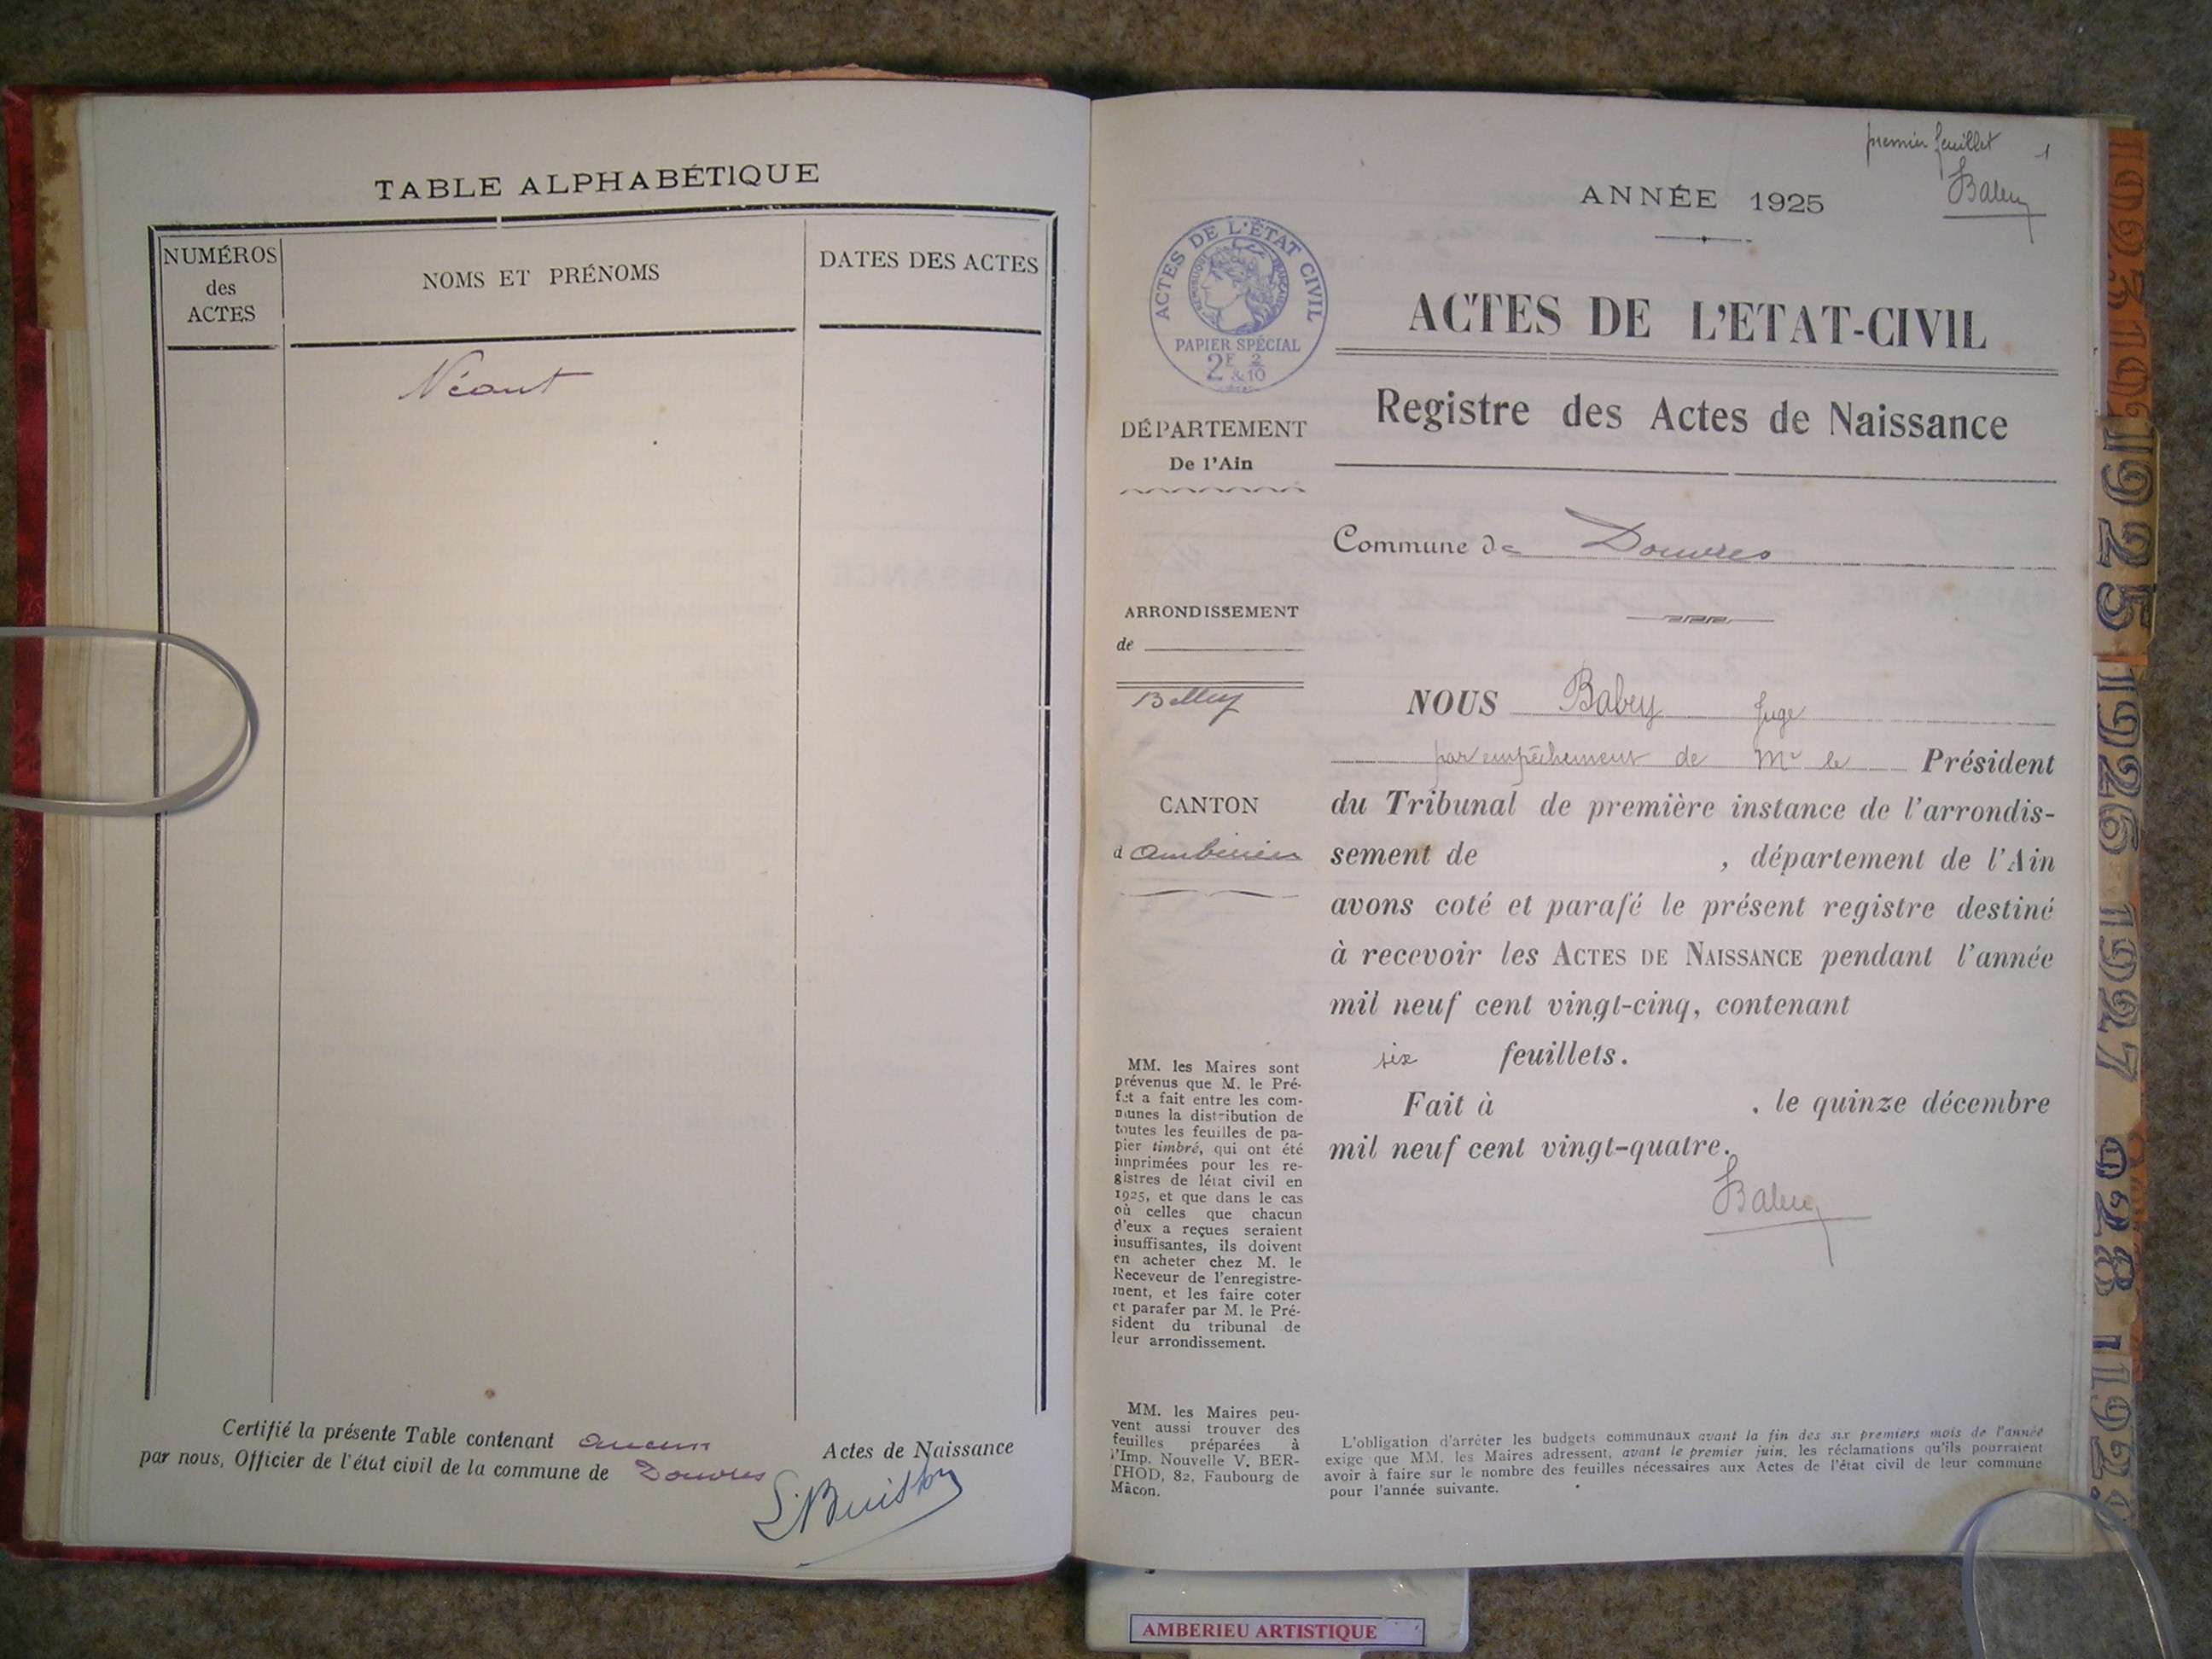 TABLE ALPHABÉTIQUE
NUMÉROS
des
ACTES
NOMS ET PRÉNOMS
DATES DES ACTES
Néant
Certifié la présente Table contenant aucun Actes de Naissance
par nous, Officier de l'état civil de la commune de Douvres
premier feuillet 1
ANNÉE 1925
ACTES DE L'ÉTAT CIVIL
RÉPUBLIQUE FRANÇAISE
PAPIER SPÉCIAL
2F & 2/10
ACTES DE L'ETAT-CIVIL
Registre des Actes de Naissance
DÉPARTEMENT
De l'Ain
Commune de Douvres
ARRONDISSEMENT
de
Belley
CANTON
d'Ambérieu
NOUS Babey Juge
par empêchement de Mr le Président
du Tribunal de première instance de l'arrondis-
sement de , département de l'Ain
avons coté et parafé le présent registre destiné
à recevoir les ACTES DE NAISSANCE pendant l'année
mil neuf cent vingt-cinq, contenant
six feuillets.
Fait à , le quinze décembre
mil neuf cent vingt-quatre.
Babey
MM. les Maires sont
prévenus que M. le Pré-
fet a fait entre les com-
munes la distribution de
toutes les feuilles de pa-
pier timbré, qui ont été
imprimées pour les re-
gistres de létat civil en
1925, et que dans le cas
où celles que chacun
d'eux a reçues seraient
insuffisantes, ils doivent
en acheter chez M. le
Receveur de l'enregistre-
ment, et les faire coter
et parafer par M. le Pré-
sident du tribunal de
leur arrondissement.
MM. les Maires peu-
vent aussi trouver des
feuilles préparées à
l'Imp. Nouvelle V. BER-
THOD, 82, Faubourg de
Mâcon.
L'obligation d'arrêter les budgets communaux avant la fin des six premiers mois de l'année
exige que MM. les Maires adressent, avant le premier juin, les réclamations qu'ils pourraient
avoir à faire sur le nombre des feuilles nécessaires aux Actes de l'état civil de leur commune
pour l'année suivante.
1925
1926
1927
AMBERIEU ARTISTIQUE